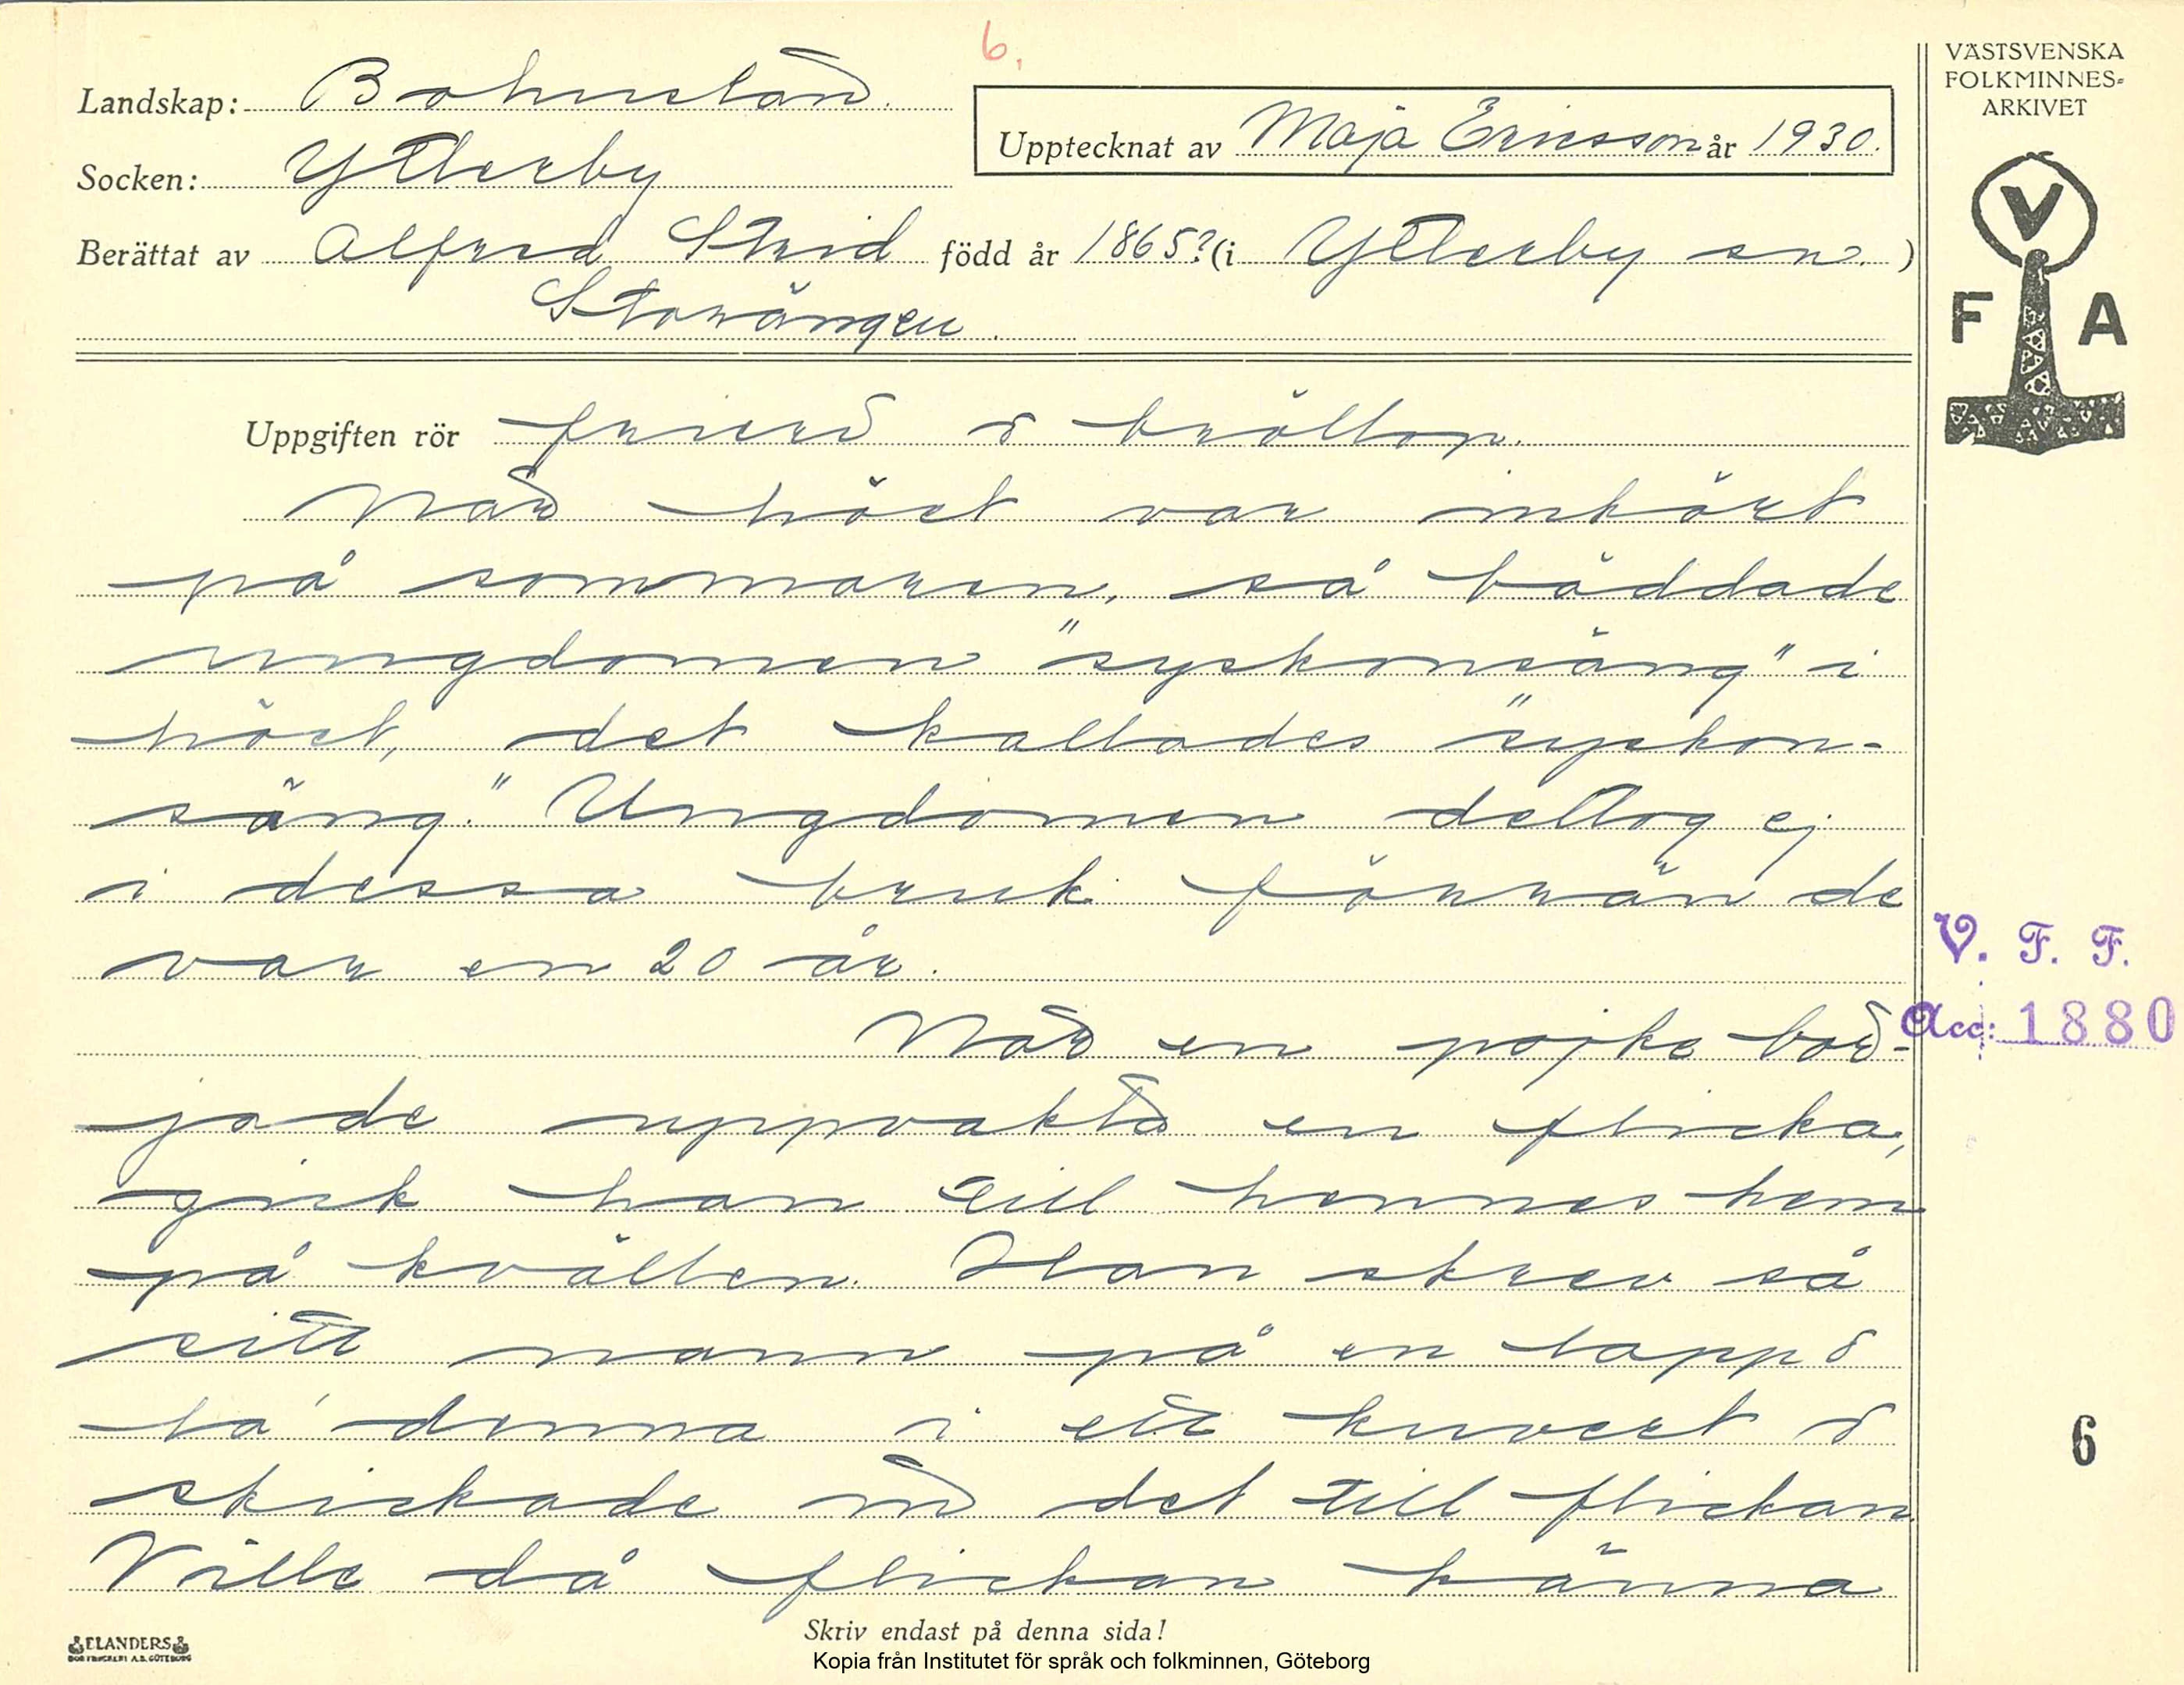 6.
VÄSTSVENSKA
FOLKMINNES=
ARKIVET
Landskap: Bohuslän.
Upptecknat av Maja Ericsson år 1930.
Socken: Ytterby
Berättat av Alfred Strid född år 1865? (i Ytterby sn.)
Storängen.
V
F A
Uppgiften rör frieri o bröllop.
När höet var inkört
på sommaren, så bäddade
ungdomen "syskonsäng" i
höet, det kallades "syskon-
säng." Ungdomen deltog ej
i dessa bruk förrän de
var en 20 år.
V. F. F.
När en pojke bör-
Acc: 1880
jade uppvakta en flicka,
gick han till hennes hem
på kvällen. Han skrev så
sitt namn på en lapp o
la' denna i ett kuvert o
6
skickade in det till flickan
Ville då flickan känna
Skriv endast på denna sida!
ELANDERS
BOKTRYCKERI A.B. GÖTEBORG
Kopia från Institutet för språk och folkminnen, Göteborg